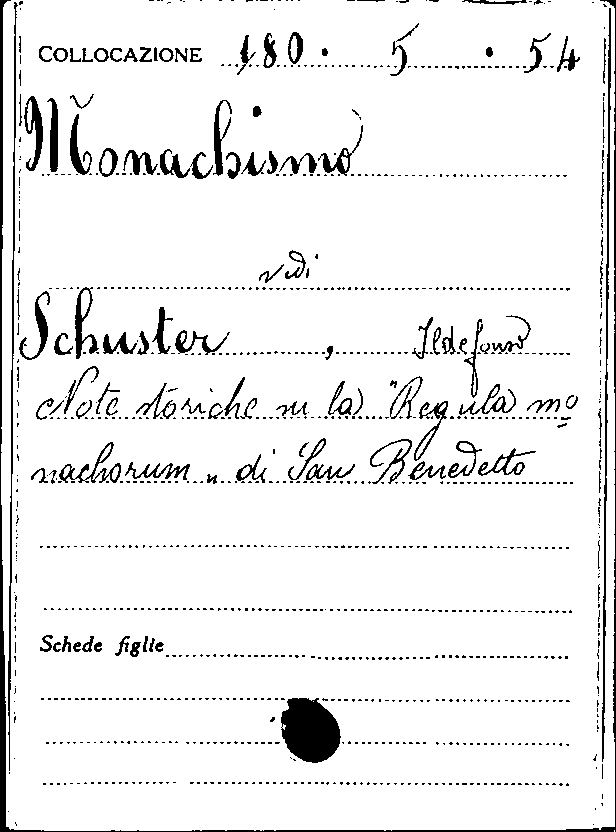 COLLOCAZIONE 180 . 5 . 54
Monachismo
vedi
Schuster , Ildefonso
Note storiche su la "Regula mo
nachorum „ di San Benedetto
Schede figlie